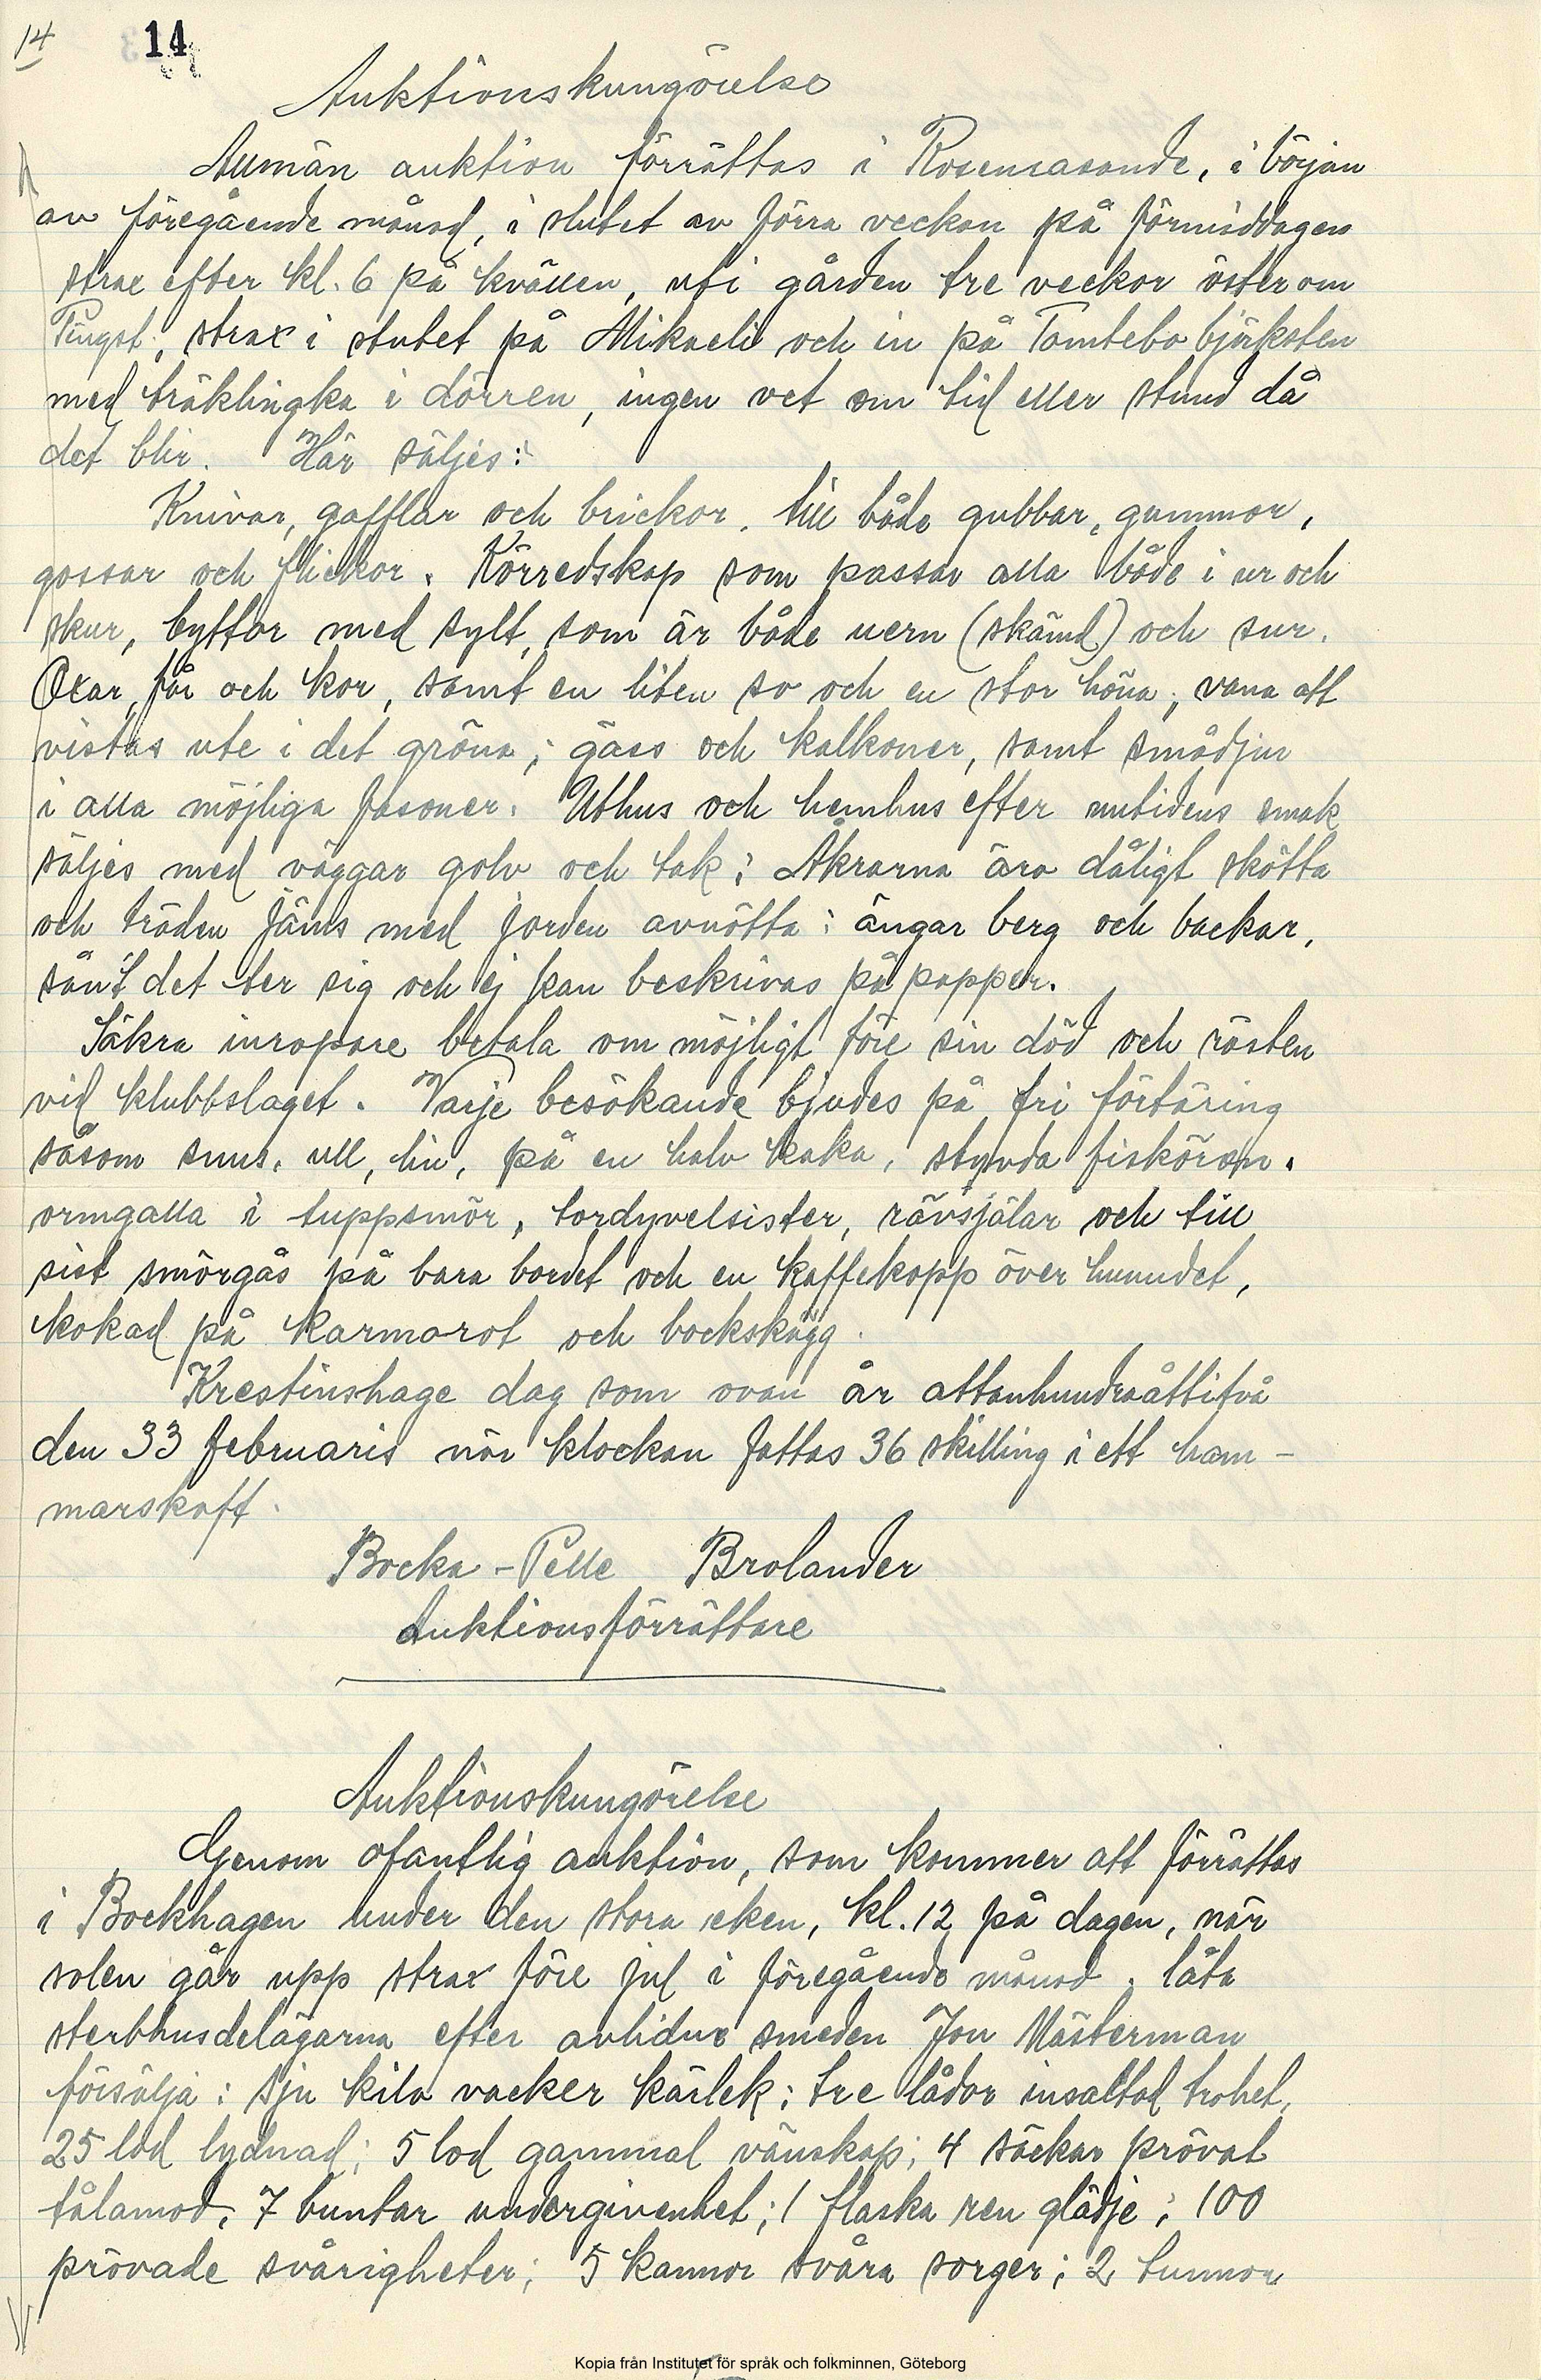 14
14
Auktionskungörelse
Allmän auktion förrättas i Rosensasande, i början
av föregående månad, i slutet av förra veckan på förmiddagen
strax efter kl. 6 på kvällen, uti gården tre veckor österom
Pingst, strax i slutet på Mikaeli och in på Tomtebo björksten
med träklingka i dörren, ingen vet om tid eller stund då
det blir. Här säljes:
Knivar, gafflar och brickor, till både gubbar, gummor,
gossar och flickor. Körredskap som passar alla både i ur och
skur, byttor med sylt, som är både uern (skämd) och sur.
Oxar, får och kor, samt en liten so och en stor höna, vana att
vistas ute i det gröna; gäss och kalkoner, samt smådjur
i alla möjliga fasoner. Uthus och hemhus efter nutidens smak
säljes med väggar golv och tak; Åkrarna äro dåligt skötta
och träden jäms med jorden avnötta; ängar berg och backar,
sån't det ter sig och ej kan beskrivas på papper.
Säkra inropare betala om möjligt före sin död och rästen
vid klubbslaget. Varje besökande bjudes på fri förtäring
såsom snus, ull, lin, på en halv kaka, stynda fisköron,
ormgalla i tuppsmör, tordyvelsister, rävsjälar och till
sist smörgås på bara bordet och en kaffekopp över huvudet,
kokad på karmarot och bockskägg.
Krestinshage dag som ovan år attanhundraåttitvå
den 33 februaris när klockan fattas 36 skilling i ett ham-
marskaft.
Bocka-Pelle Brolander
Auktionsförrättare
Auktionskungörelse
Genom ofantlig auktion, som kommer att förrättas
i Bockhagen under den stora eken, kl. 12 på dagen, när
solen går upp strax före jul i föregående månad, låta
sterbhusdelägarna efter avlidne smeden Jon Mästerman
försälja: sju kilo vacker kärlek; tre lådor insaltad trohet,
25 lod lydnad; 5 lod gammal vänskap; 4 säckar prövat
tålamod; 7 buntar undergivenhet; 1 flaska ren glädje; 100
prövade svårigheter; 5 kannor svåra sorger; 2 tunnor
Kopia från Institutet för språk och folkminnen, Göteborg